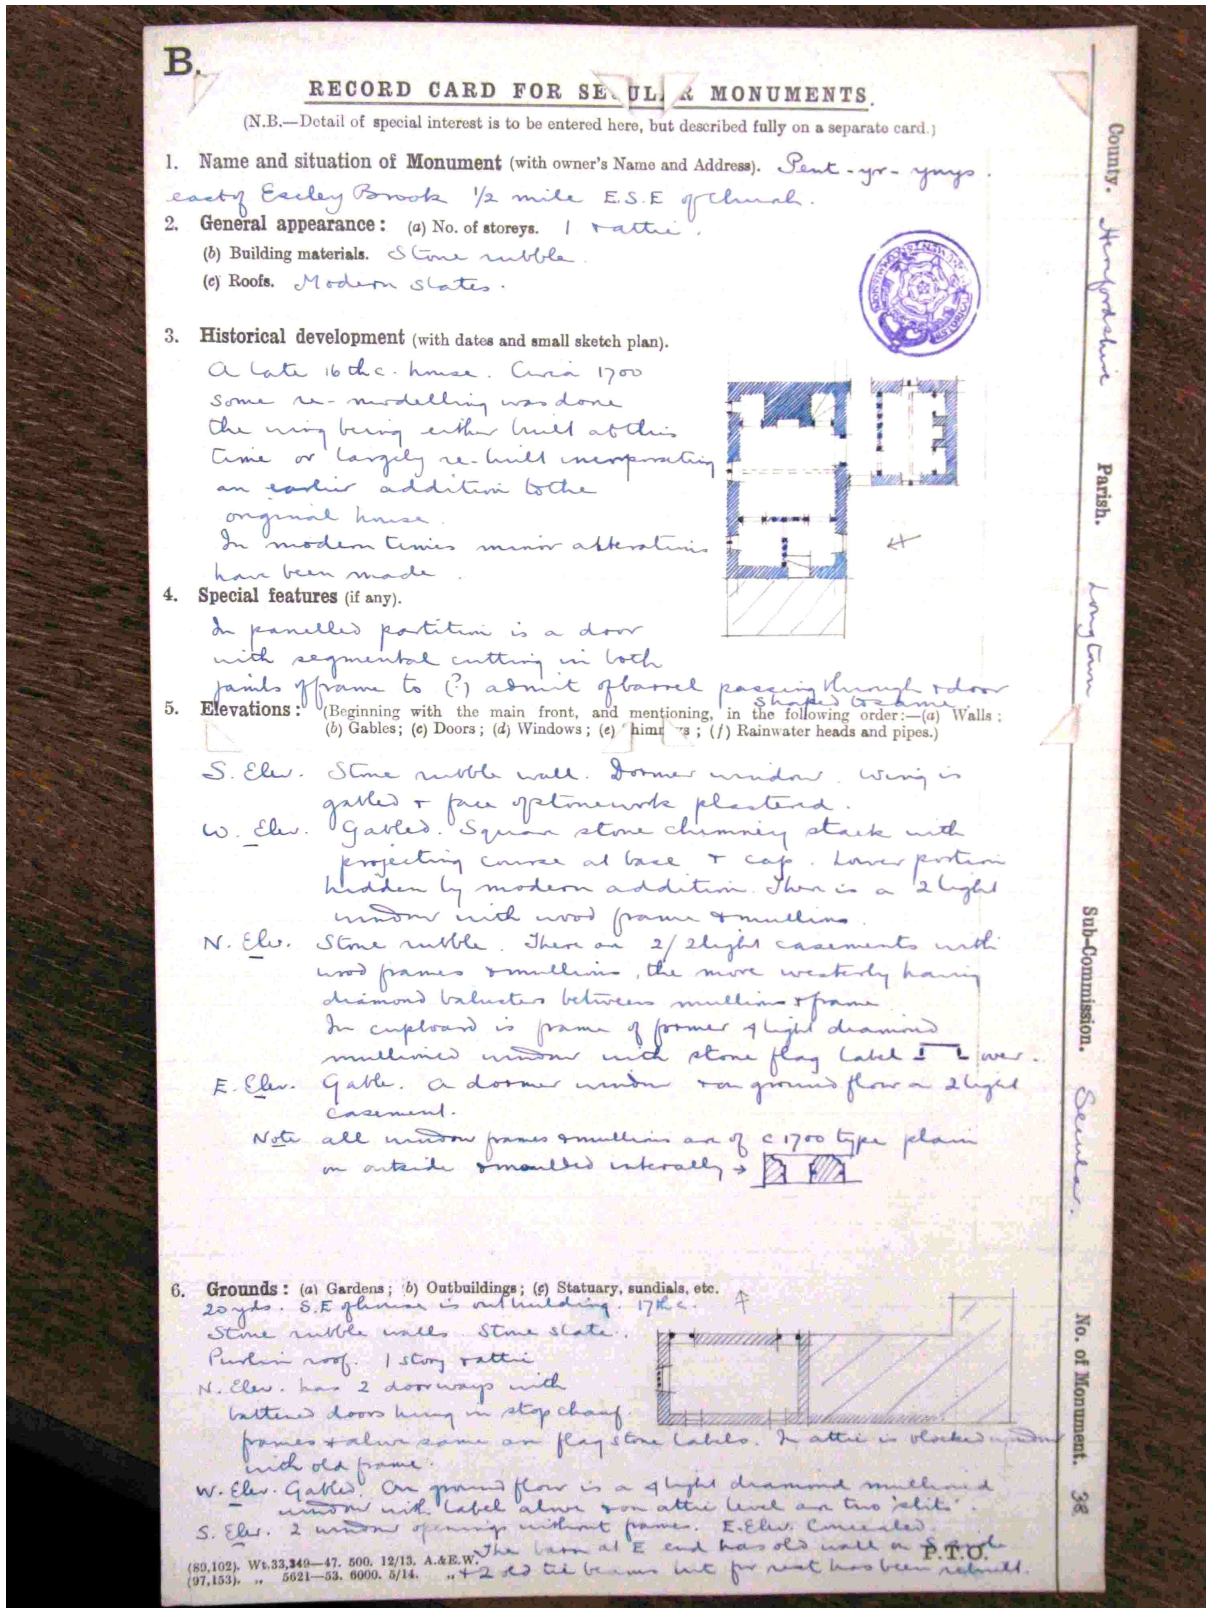 B.
RECORD CARD FOR SECULAR MONUMENTS.
(N.B.—Detail of special interest is to be entered here, but described fully on a separate card.)
1. Name and situation of Monument (with owner's Name and Address). Pent-yr-ynys.
east of Escley Brook 1/2 mile E.S.E of Church.
2. General appearance: (a) No. of storeys. 1 + attic.
(b) Building materials. Stone rubble.
(c) Roofs. Modern slates.
3. Historical development (with dates and small sketch plan).
A late 16th c. house. Circa 1700
some re-modelling was done
the wing being either built at this
time or largely re-built incorporating
an earlier addition to the
original house.
In modern times minor alterations
have been made.
4. Special features (if any).
In panelled partition is a door
with segmental cutting in both
jambs of frame to (?) admit of barrel passing through + door
shaped to same.
5. Elevations: (Beginning with the main front, and mentioning, in the following order:—(a) Walls;
(b) Gables; (c) Doors; (d) Windows; (e) Chimneys; (f) Rainwater heads and pipes.)
S. Elev. Stone rubble wall. Dormer window. Wing is
gabled + face of stonework plastered.
W. Elev. Gabled. Square stone chimney stack with
projecting course at base + cap. Lower portion
hidden by modern addition. There is a 2 light
window with wood frame + mullions.
N. Elev. Stone rubble. There are 2/2 light casements with
wood frames + mullions, the more westerly having
diamond balusters between mullions + frame
In cupboard is frame of former 4 light diamond
mullioned window with stone flag label over.
E. Elev. Gable. A dormer window + on ground floor a 2 light
casement.
Note all window frames + mullions are of c 1700 type plain
on outside + moulded internally →
6. Grounds: (a) Gardens; (b) Outbuildings; (c) Statuary, sundials, etc.
20 yds. S.E of house is outbuilding. 17th c.
Stone rubble walls. Stone slate.
Purlin roof. 1 story + attic
N. Elev. has 2 doorways with
battened doors hung in stop chamf
frames + above same are flag stone labels. In attic is blocked window
with old frame.
W. Elev. Gabled. On ground floor is a 4 light diamond mullioned
window with label above + on attic level are two 'slits'.
S. Elev. 2 window openings without frames. E. Elev. Concealed.
The barn at E end has old wall on S side
+ 2 old tie beams but for rest has been rebuilt.
P.T.O.
(89,102). Wt.33,349—47. 500. 12/13. A.&E.W.
(97,153). „ 5621—53. 6000. 5/14. „
County. Herefordshire
Parish. Longtown
Sub-Commission. Secular.
No. of Monument. 38